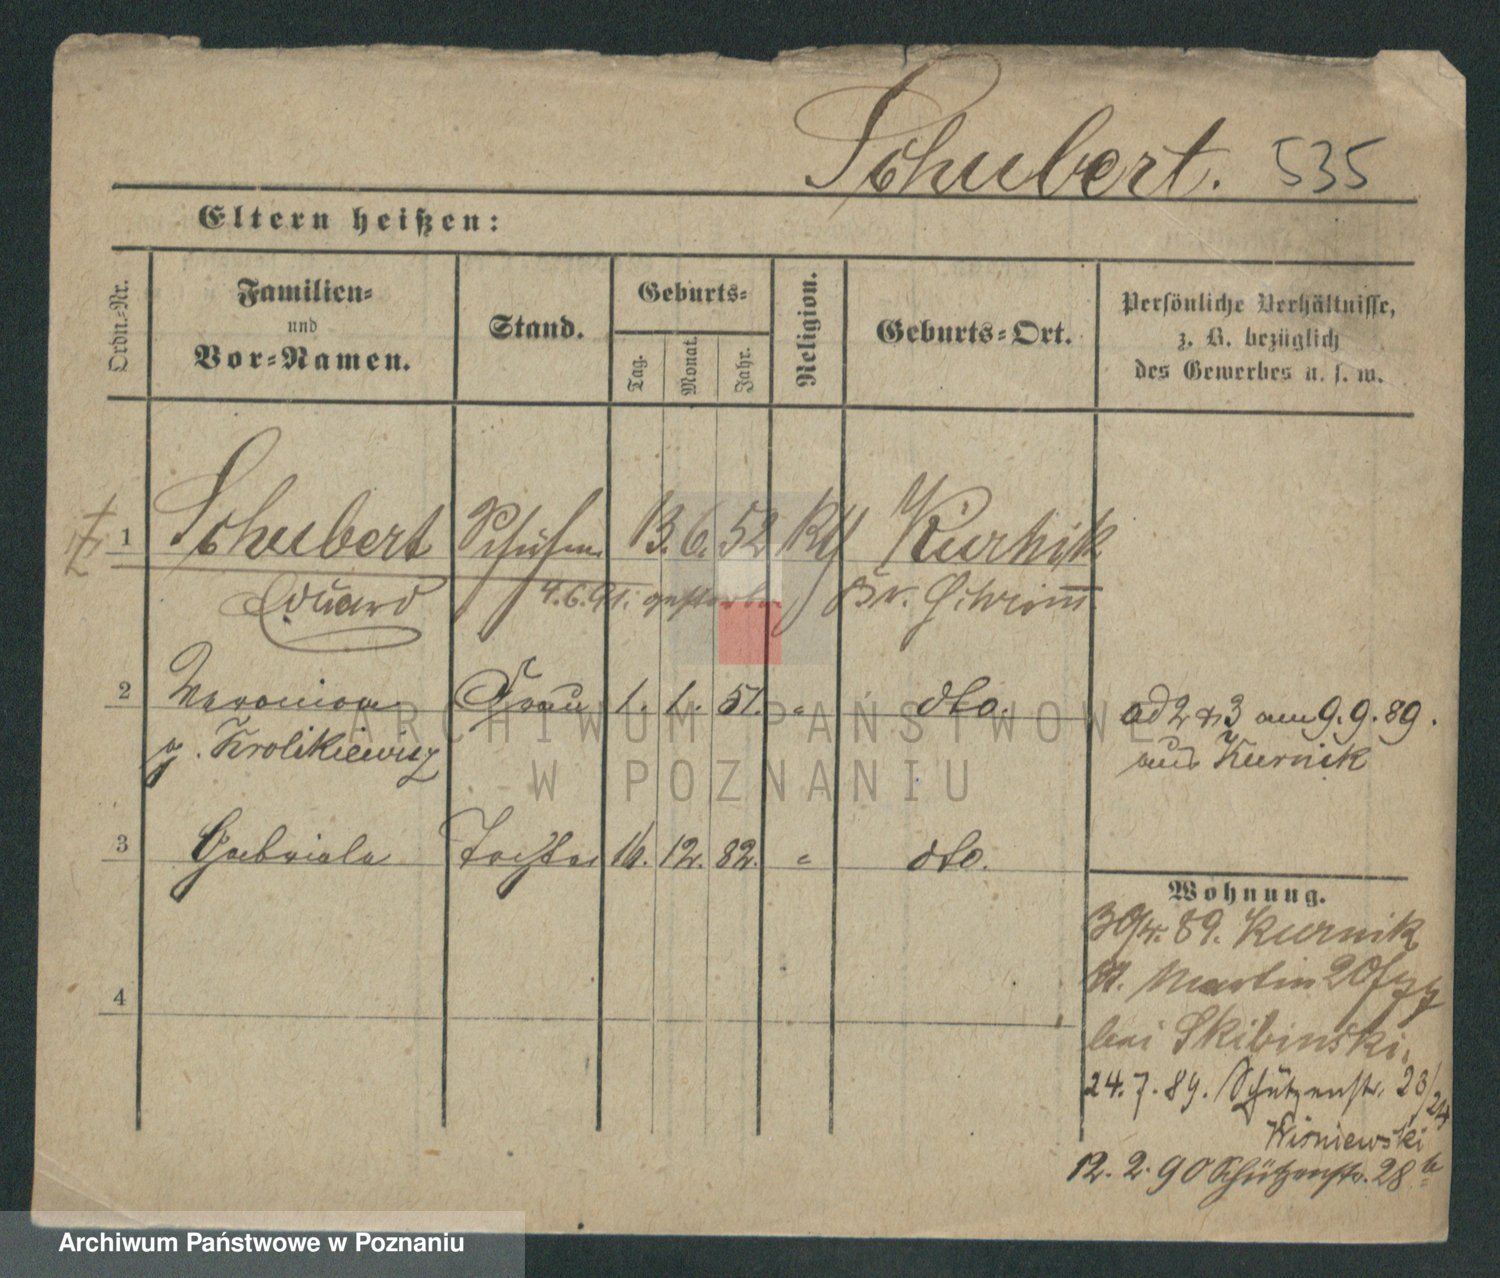 Schubert. 535
Eltern heißen:
Ordn.-Nr.
Familien-
und
Vor-Namen.
Stand.
Geburts-
Tag.
Monat.
Jahr.
Religion.
Geburts-Ort.
Persönliche Verhältnisse,
z. B. bezüglich
des Gewerbes u. s. w.
1 Schubert 13. 6. 52 Kurnik
Eduard 4.6.91. gestorben Kr. Schrimm
2 Veronica Frau 1. 1. 51. " dto.
g. Krolikiewicz
ad 2 & 3 am 9.9.89.
aus Kurnik
3 Gabriele Tochter 16. 12. 82. " dto.
4
Wohnung.
30/4. 89. Kurnik
St. Martin 20
bei Skibinski.
24.7.89. Schützenstr. 23/24
Wisniewski
12. 2. 90 Schützenstr. 28
ARCHIWUM PAŃSTWOWE
W POZNANIU
Archiwum Państwowe w Poznaniu